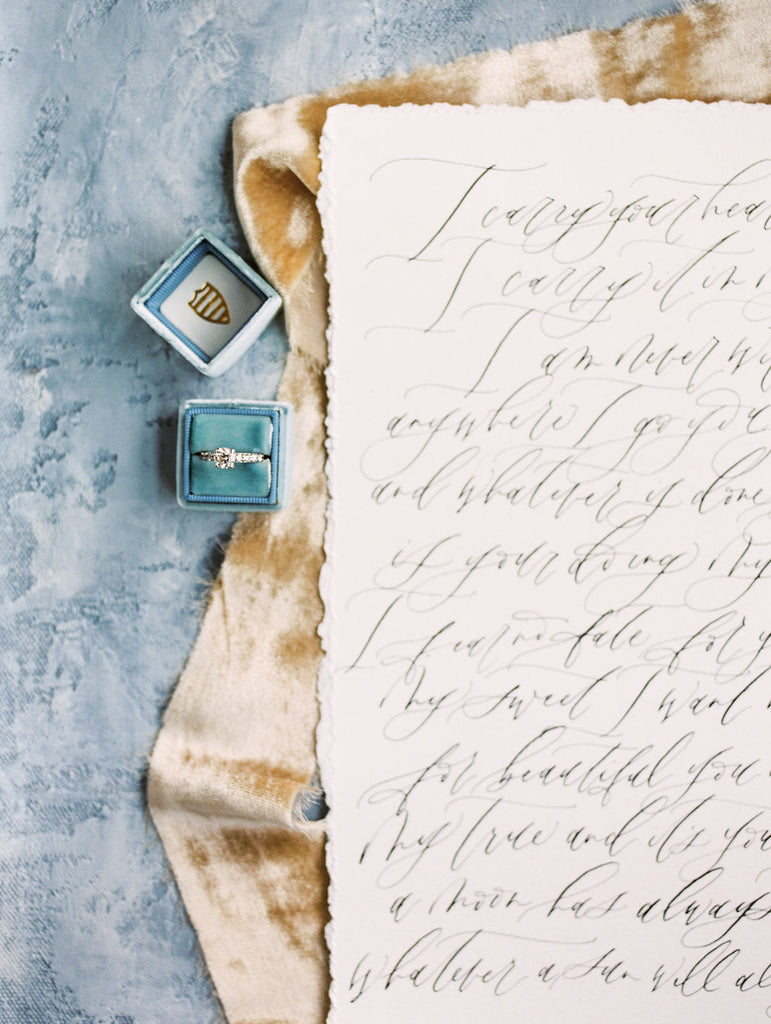 I carry your hear
I carry it in
I am never wi
anywhere I go you
and whatever is done
is your doing my
I fear no fate for y
my sweet I want
for beautiful you
my true and it's you
a moon has always
whatever a sun will al